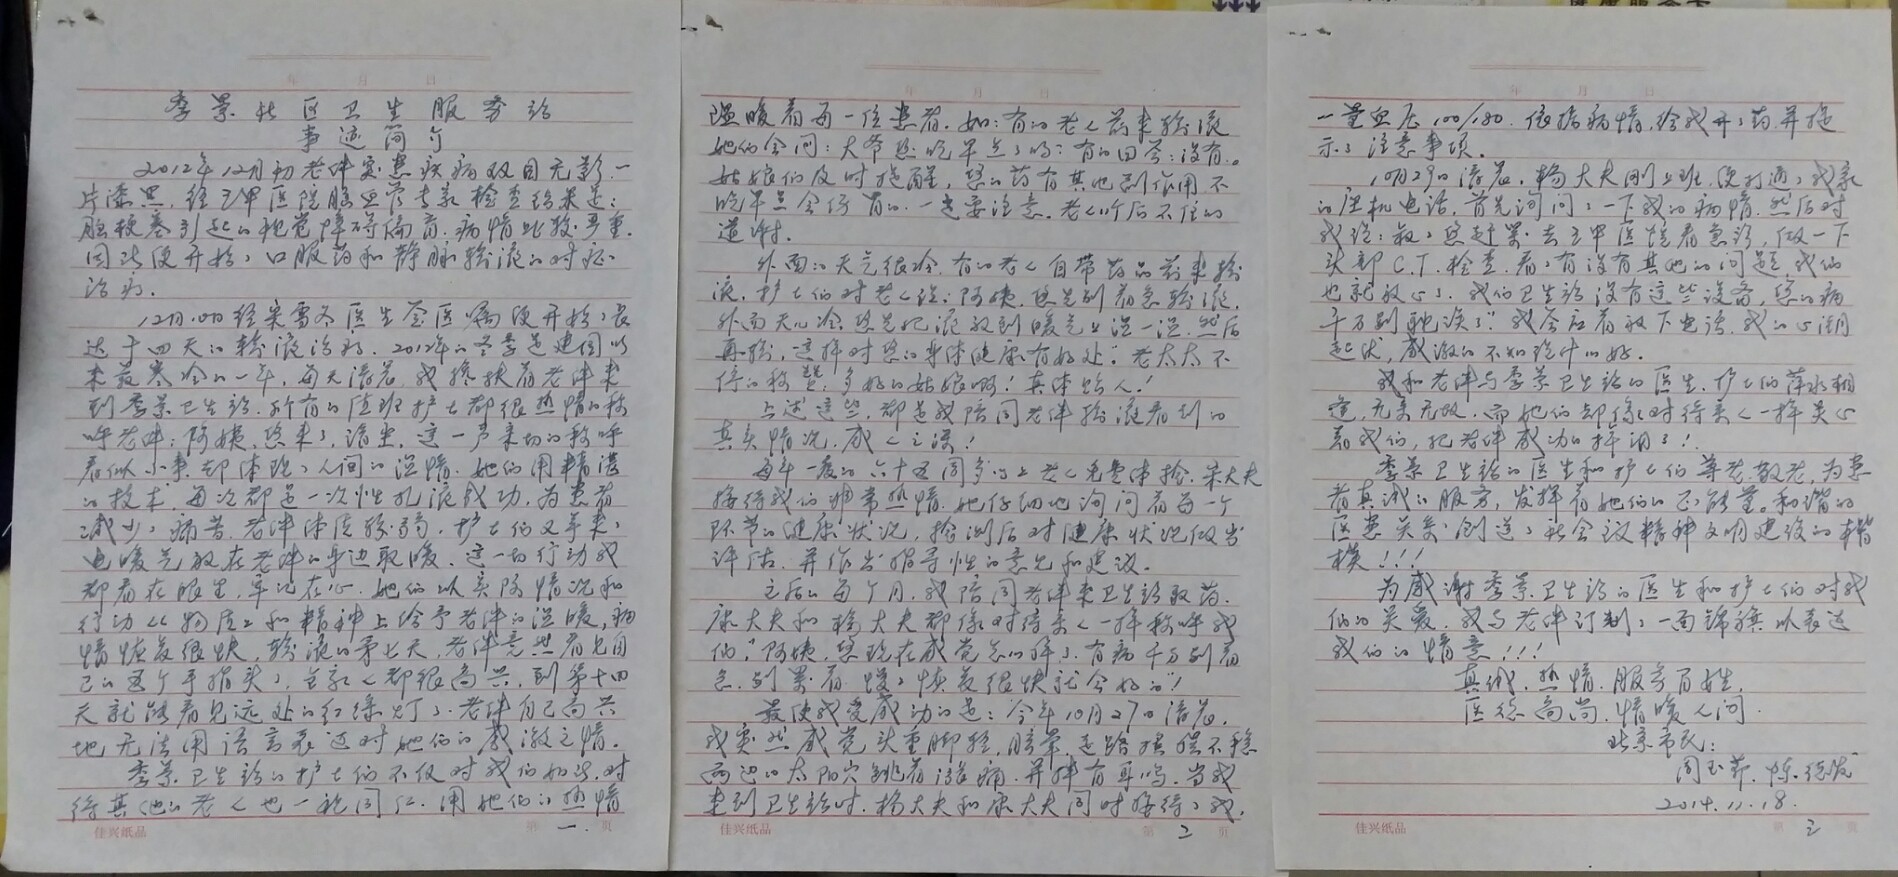 年 月 日
季景社区卫生服务站
事迹简介
2012年12月初老伴突患疾病双目无影一
片漆黑，经三甲医院脑血管专家检查结果是：
脑梗塞引起的视觉障碍偏盲，病情比较严重。
因此便开始了口服药和静脉输液的对症
治疗。
12月 日经宋雪冬医生签医嘱便开始了长
达十四天的输液治疗。2012年的冬季是建国以
来最寒冷的一年，每天清晨我搀扶着老伴来
到季景卫生站，所有的值班护士都很热情的称
呼老伴：阿姨，您来了，请坐，这一声亲切的称呼
看似小事却体现了人间的温情。她们用精湛
的技术，每次都是一次性扎液成功，为患者
减少了痛苦，老伴体质较弱，护士们又拿来了
电暖气放在老伴的身边取暖，这一切行动我
都看在眼里，牢记在心。她们以实际情况和
行动从物质上和精神上给予老伴的温暖，病
情恢复很快，输液的第七天，老伴竟然看见自
己的五个手指头了，全家人都很高兴，到第十四
天就能看见远处的红绿灯了，老伴自己高兴
地无法用语言表达对她们的感激之情。
季景卫生站的护士们不仅对我们如此，对
待其他的老人也一视同仁，用她们的热情
佳兴纸品 第 一 页
年 月 日
温暖着每一位患者。如：有的老人前来输液
她们会问：大爷您吃早点了吗？有的回答：没有。
姑娘们及时提醒，您的药有其他副作用不
吃早点会伤胃的，一定要注意。老人听后不住的
道谢。
外面的天气很冷，有的老人自带药品前来输
液，护士们对老人说：阿姨，您先别着急输液，
外面天儿冷，您先把液放到暖气上温一温，然后
再输，这样对您的身体健康有好处”。老太太不
停的称赞，多好的姑娘啊！真体贴人！
上述这些，都是我陪同老伴输液看到的
真实情况，感人之深！
每年一度的六十五周岁以上老人免费体检，宋大夫
接待我们非常热情，她仔细地询问着每一个
环节的健康状况，检测后对健康状况做出
评估，并作出指导性的意见和建议。
之后的每个月，我陪同老伴来卫生站取药。
康大夫和杨大夫都像对待亲人一样称呼我
们，“阿姨，您现在感觉怎么样了，有病千万别着
急，别累着，慢慢恢复很快就会好的”！
最使我受感动的是：今年10月27日清晨，
我突然感觉头重脚轻，脑晕，走路摇摆不稳
两边的太阳穴跳着涨痛，并伴有耳鸣，当我
来到卫生站时，杨大夫和康大夫同时接待了我，
佳兴纸品 第 二 页
年 月 日
一量血压100/180，依据病情，给我开了药并提
示了注意事项。
10月29日清晨，杨大夫刚上班，便打通了我家
的座机电话，首先询问了一下我的病情，然后对
我说：叔，您赶紧去三甲医院看急诊，做一下
头部C.T.检查，看看有没有其他的问题，我们
也就放心了。我们卫生站没有这些设备，您的病
千万别耽误了”。我答应着放下电话，我的心潮
起伏，感激的不知说什么好。
我和老伴与季景卫生站的医生、护士们萍水相
逢，无亲无故，而她们却像对待亲人一样关心
着我们，把老伴成功的拼 了！
季景卫生站的医生和护士们尊老敬老，为患
者真诚的服务，发挥着她们的正能量。和谐的
医患关系，创造了社会主义精神文明建设的楷
模！！！
为感谢季景卫生站的医生和护士们对我
们的关爱，我与老伴订制了一面锦旗以表达
我们的情意！！！
真诚、热情、服务百姓，
医德高尚、情暖人间。
北京市民：
周玉
2014.11.18.
佳兴纸品 第 三 页